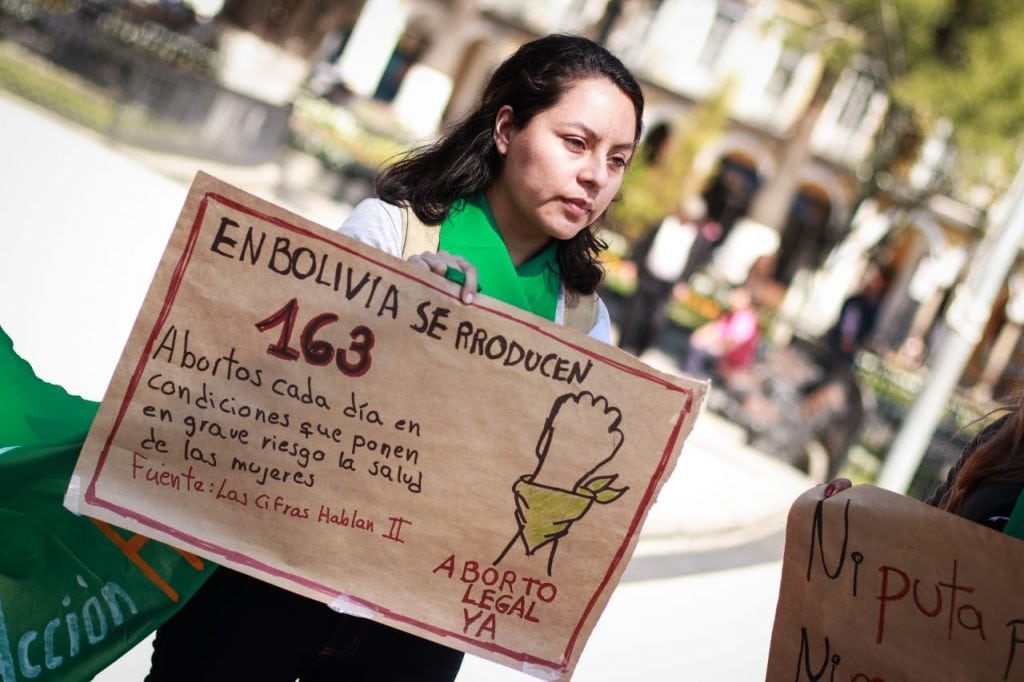 EN BOLIVIA SE PRODUCEN
163
Abortos cada día en
condiciones que ponen
en grave riesgo la salud
de las mujeres
Fuente: Las Cifras Hablan II
ABORTO
LEGAL
YA
Acción
Ni puta
Ni